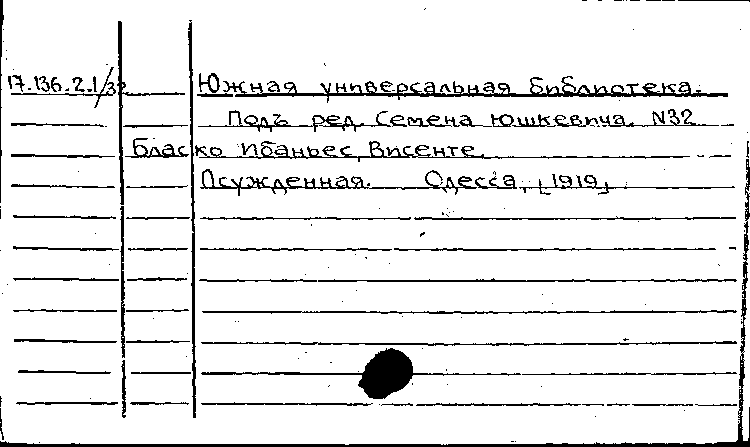 17.136.2.1/32 Южная универсальная библиотека.
Подъ ред. Семена Юшкевича. N32
Бласко Ибаньес, Висенте.
Осужденная. Одесса, [1919]